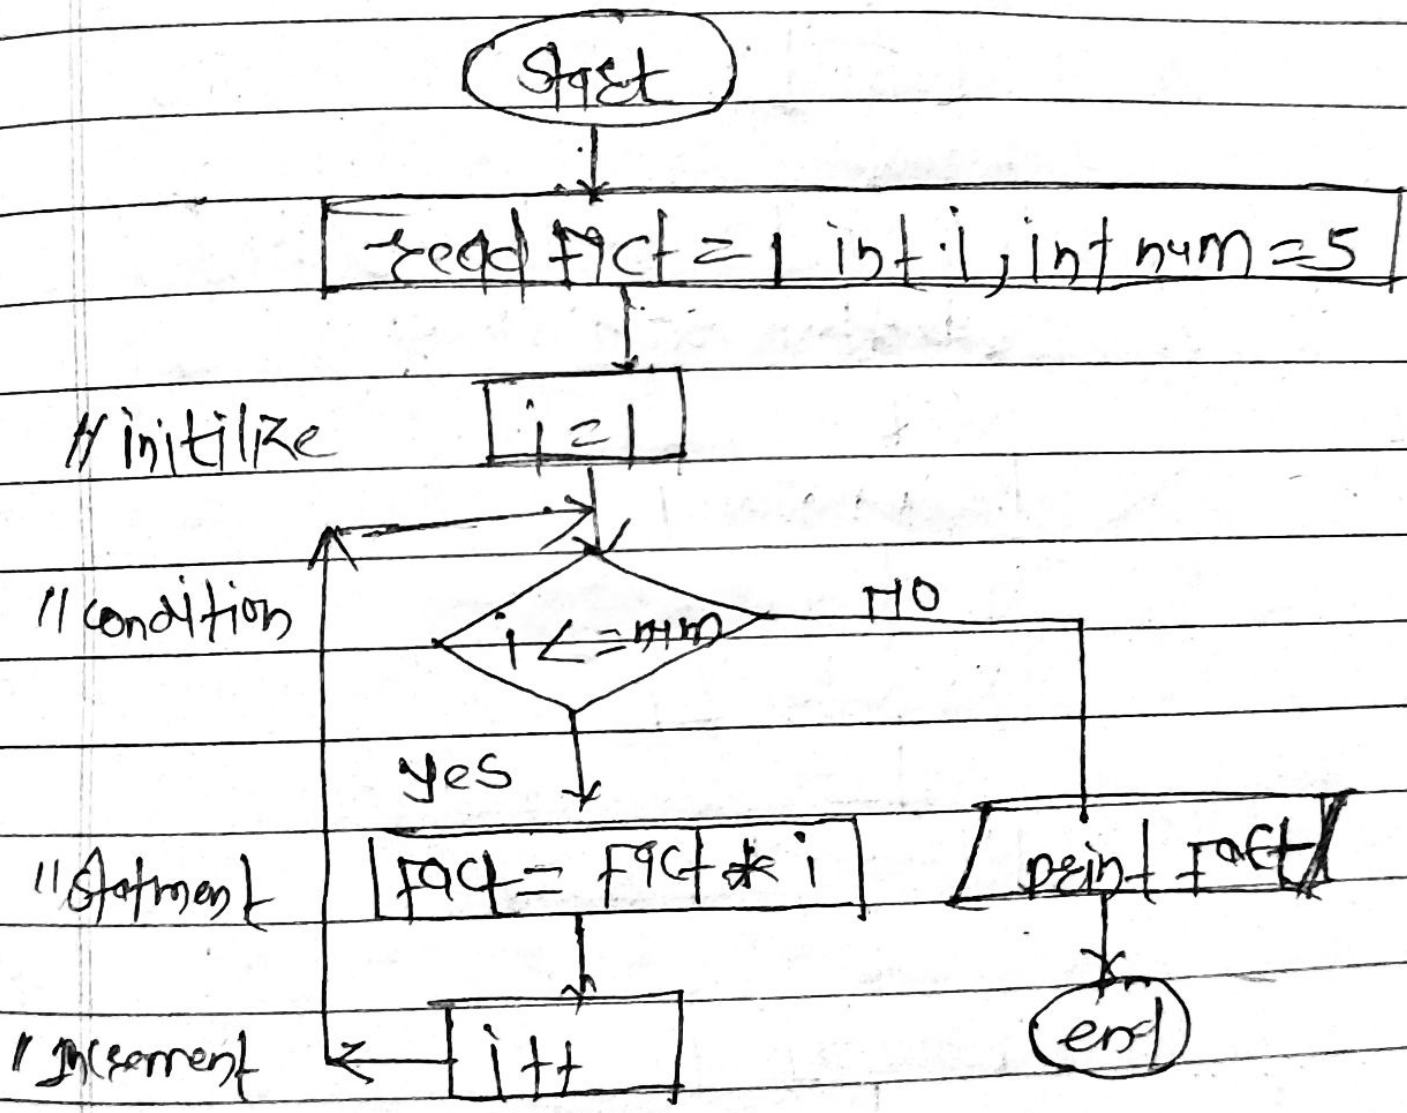 Start
read fact = 1 int i, int num = 5
// initilize
i = 1
// condition
i <= num
NO
yes
// Statment
Fact = Fact * i
print Fact
// Increment
i++
end